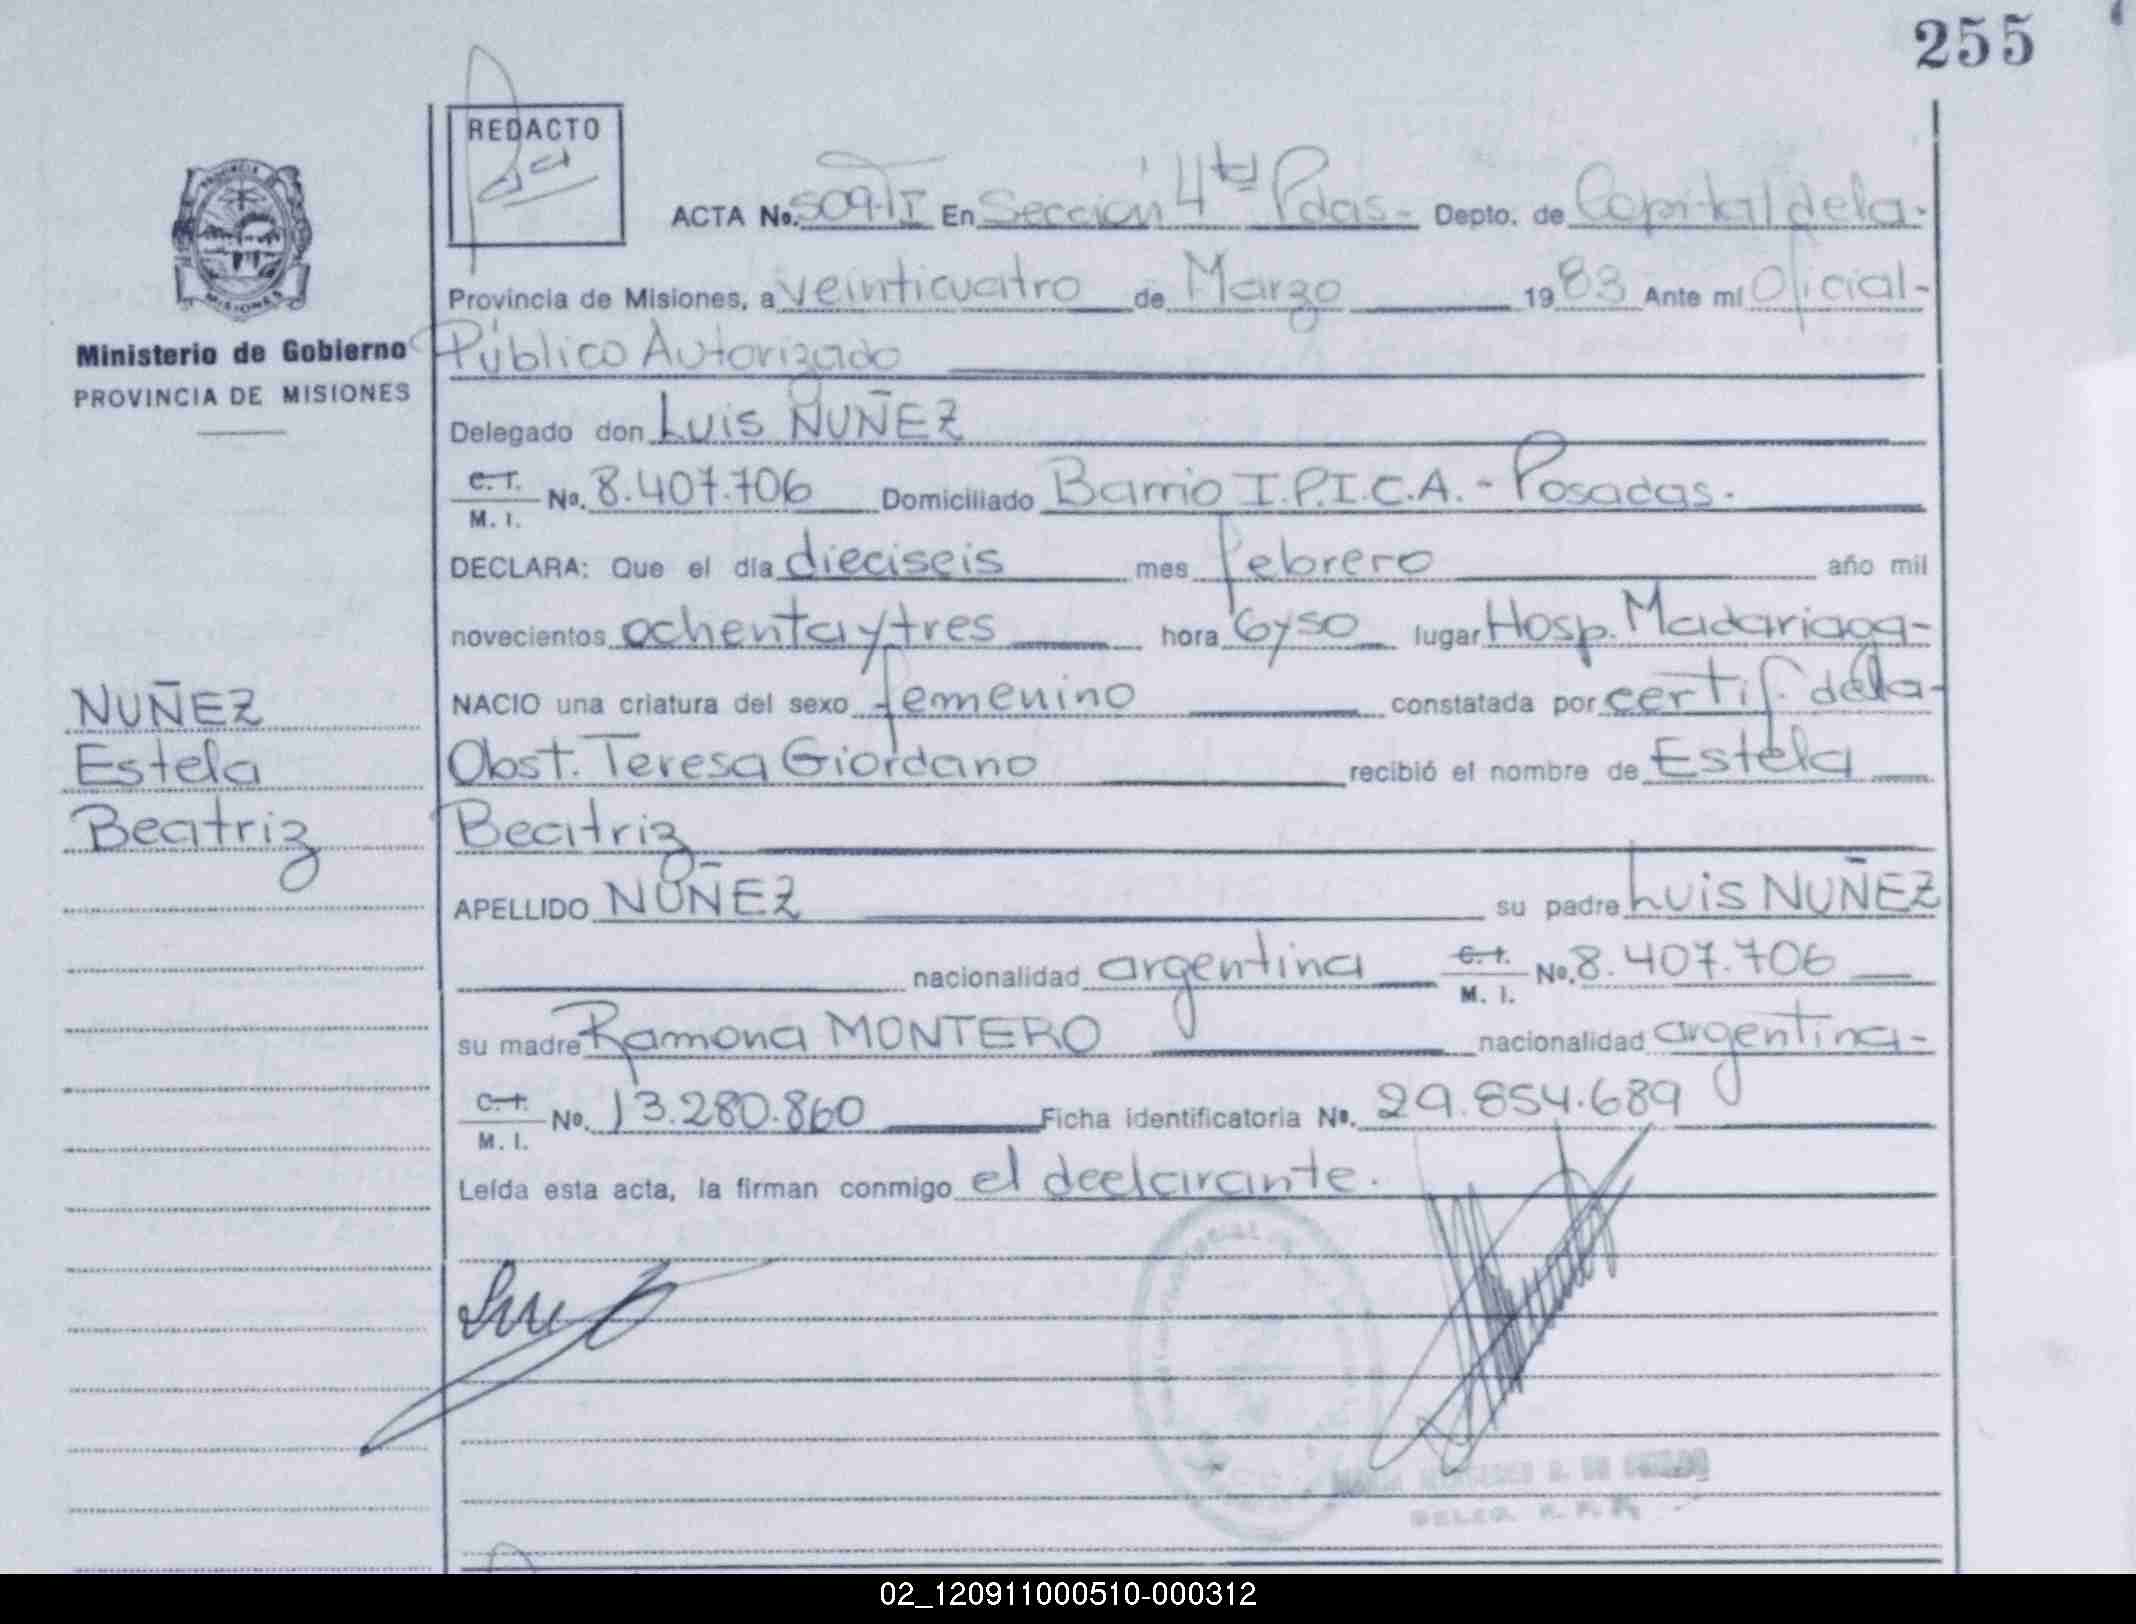 255
REDACTO
ACTA No. 509-TI En Sección 4ta Pdas- Depto. de Capital de la-
Provincia de Misiones, a veinticuatro de Marzo 1983 Ante mí Oficial-
Ministerio de Gobierno
PROVINCIA DE MISIONES
Público Autorizado
Delegado don Luis NUÑEZ
C.I. M. I. No. 8.407.706 Domiciliado Barrio I.P.I.C.A.- Posadas.
DECLARA: Que el día dieciseis mes febrero año mil
novecientos ochenta y tres hora 6y50 lugar Hosp. Madariaga-
NACIO una criatura del sexo femenino constatada por certif. de la-
Obst. Teresa Giordano recibió el nombre de Estela
Beatriz
NUÑEZ
Estela
Beatriz
APELLIDO NUÑEZ su padre Luis NUÑEZ
nacionalidad argentina C.I. M. I. No. 8.407.706
su madre Ramona MONTERO nacionalidad argentina-
C.I. M. I. No. 13.280.860 Ficha identificatoria No. 29.854.689
Leída esta acta, la firman conmigo el declarante.
02_120911000510-000312